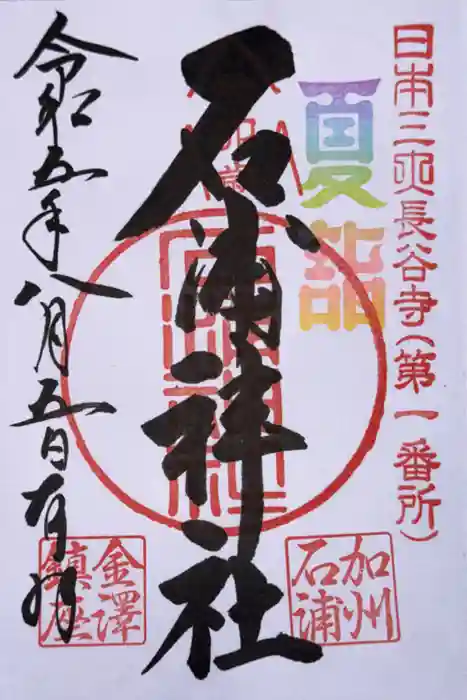 日本三夾長谷寺(第一番所)
夏詣
加州
石浦
石浦神社
金澤
鎮座
令和五年八月五日有拝